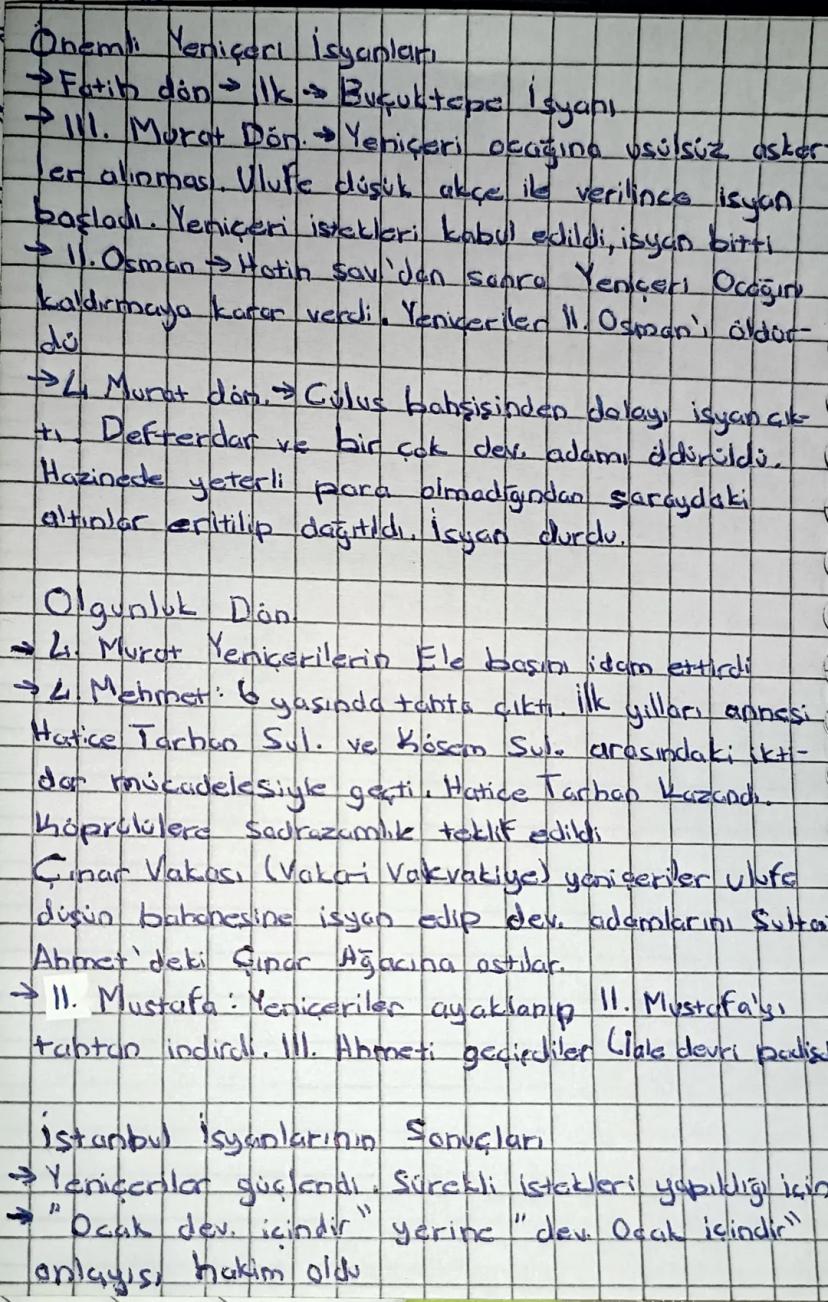 Önemli Yeniçeri İsyanları
→ Fatih dön → İlk → Buçuktepe İsyanı
→ III. Murat Dön. → Yeniçeri ocağına usülsüz asker-
ler alınması. Ulufe düşük akçe ile verilince isyan
başladı. Yeniçeri istekleri kabul edildi, isyan bitti
→ II. Osman → Hotin sav'dan sonra Yeniçeri Ocağını
kaldırmaya karar verdi. Yeniçeriler II. Osman'ı öldür-
dü
→ 4. Murat dön. → Cülus bahşişinden dolayı isyan çık-
tı. Defterdar ve bir çok dev. adamı öldürüldü.
Hazinede yeterli para olmadığından saraydaki
altınlar eritilip dağıtıldı. İsyan durdu.
Olgunluk Dön.
→ 4. Murat Yeniçerilerin Ele başını idam ettirdi
→ 4. Mehmet: 6 yaşında tahta çıktı. İlk yılları annesi
Hatice Tarhan Sul. ve Kösem Sul. arasındaki ikti-
dar mücadelesiyle geçti. Hatice Tarhan kazandı.
Köprülülere sadrazamlık teklif edildi
Çınar Vakası (Vakai Vakvakiye) yeniçeriler ulufe
düşün bahanesine isyan edip dev. adamlarını Sultan
Ahmet'deki Çınar Ağacına astılar.
→ II. Mustafa: Yeniçeriler ayaklanıp II. Mustafa'yı
tahtan indirdi. III. Ahmeti geçirdiler (lale devri padiş
İstanbul İsyanlarının Sonuçları
→ Yeniçeriler güçlendi. Sürekli istekleri yapıldığı için
→ "Ocak dev. içindir" yerine "dev. Ocak içindir"
anlayışı hakim oldu